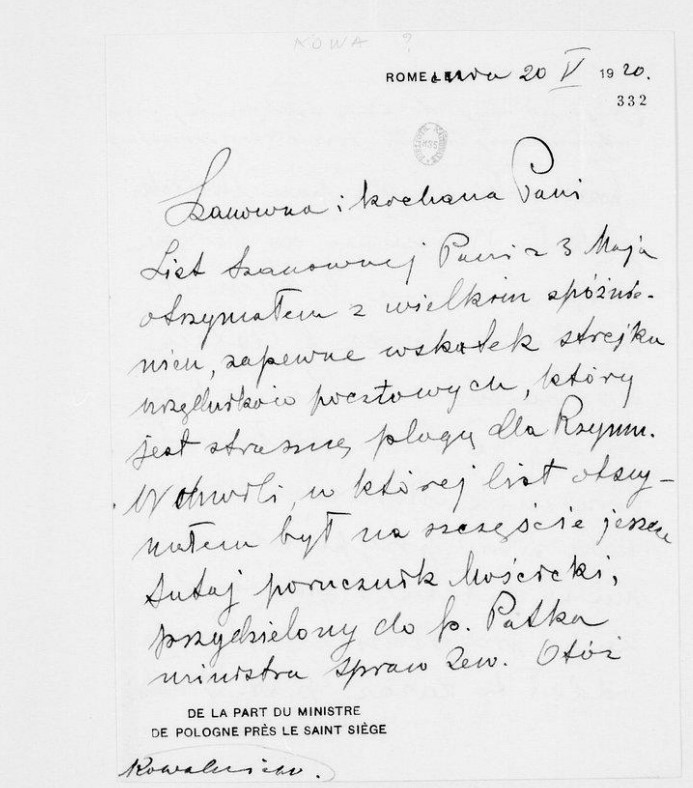 KOWA ?
ROME, 20 V 1920.
332
Szanowna i kochana Pani
List Szanownej Pani z 3 Maja
otrzymałem z wielkim spóźnie-
niem, zapewne wskutek strejku
urzędników pocztowych, który
jest straszną plagą dla Rzymu.
W chwili, w której list otrzy-
małem był na szczęście jeszcze
tutaj porucznik Mościcki,
przydzielony do p. Patka
ministra spraw zew. Otóż
DE LA PART DU MINISTRE
DE POLOGNE PRÈS LE SAINT SIÈGE